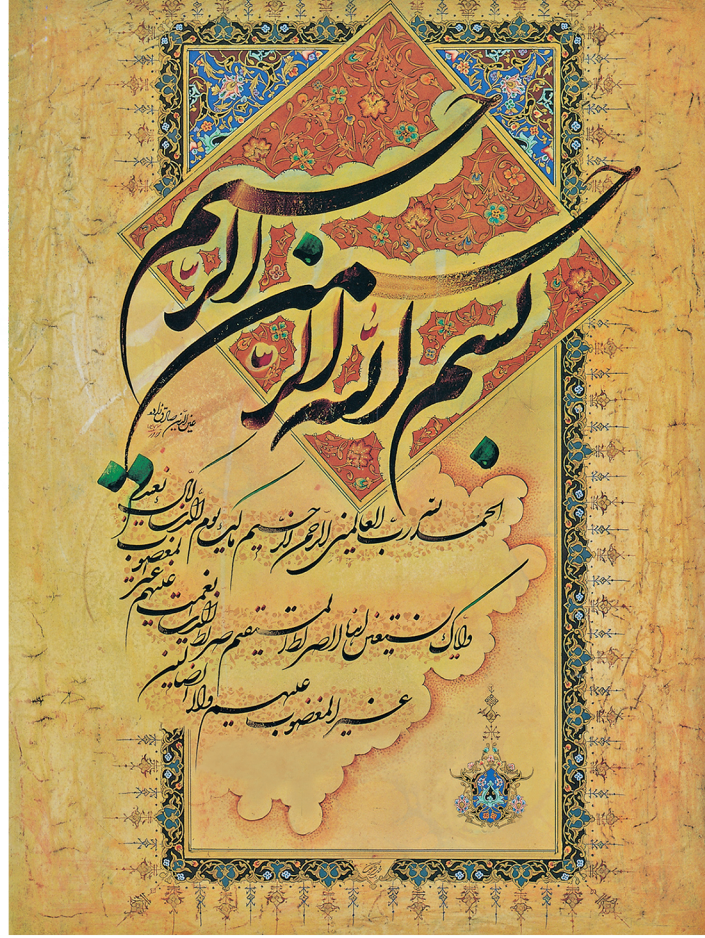 بسم الله الرحمن الرحیم
عین الدین صادق زاده
الحمد لله رب العالمین الرحمن الرحیم مالک یوم الدین ایاک نعبد
وایاک نستعین اهدنا الصراط المستقیم صراط الذین انعمت علیهم غیر المغضوب
غیر المغضوب علیهم ولا الضالین